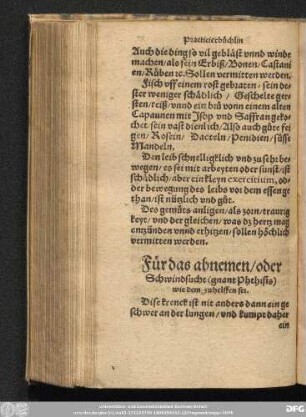 Practicierbüchlin
Auch die ding so vil gebläst vnnd winde
machen/ als sein Erbiß/ Bonen/ Castani
en/ Rüben ıc. Sollen vermitten werden.
Fisch vff einem rost gebraten/ sein de-
ster weniger schädlich/ Geschelte ger-
sten/ reiß/ vnnd ein brü vonn einem alten
Capaunen mit Isop vnd Saffran geko-
chet sein vast dienlich/ Also auch güte fei
gen/ Rosein/ Dacteln/ Penidien/ süsse
Mandeln.
Den leib schnelligklich vnd zu seht be-
wegen/ es sei mit arbeyten oder sunst/ ist
schädlich/ aber ein kleyn exercitium, od-
der bewegung des leibs vor dem essen ge
than/ ist nützlich vnd güt.
Des gemüts anligen/ als zorn/ traurig
keyt/ vnd der gleichen/ was dz hertz mag
entzünden vnnd erhitzen/ sollen höchlich
vermitten werden.
Für das abnemen/ oder
Schwindsucht (gnant Phthisis)
wie dem zuhelffen sei.
Dise krenck ist nit anders dann ein ge
schwer an der lungen/ vnd kumpt daher
ein